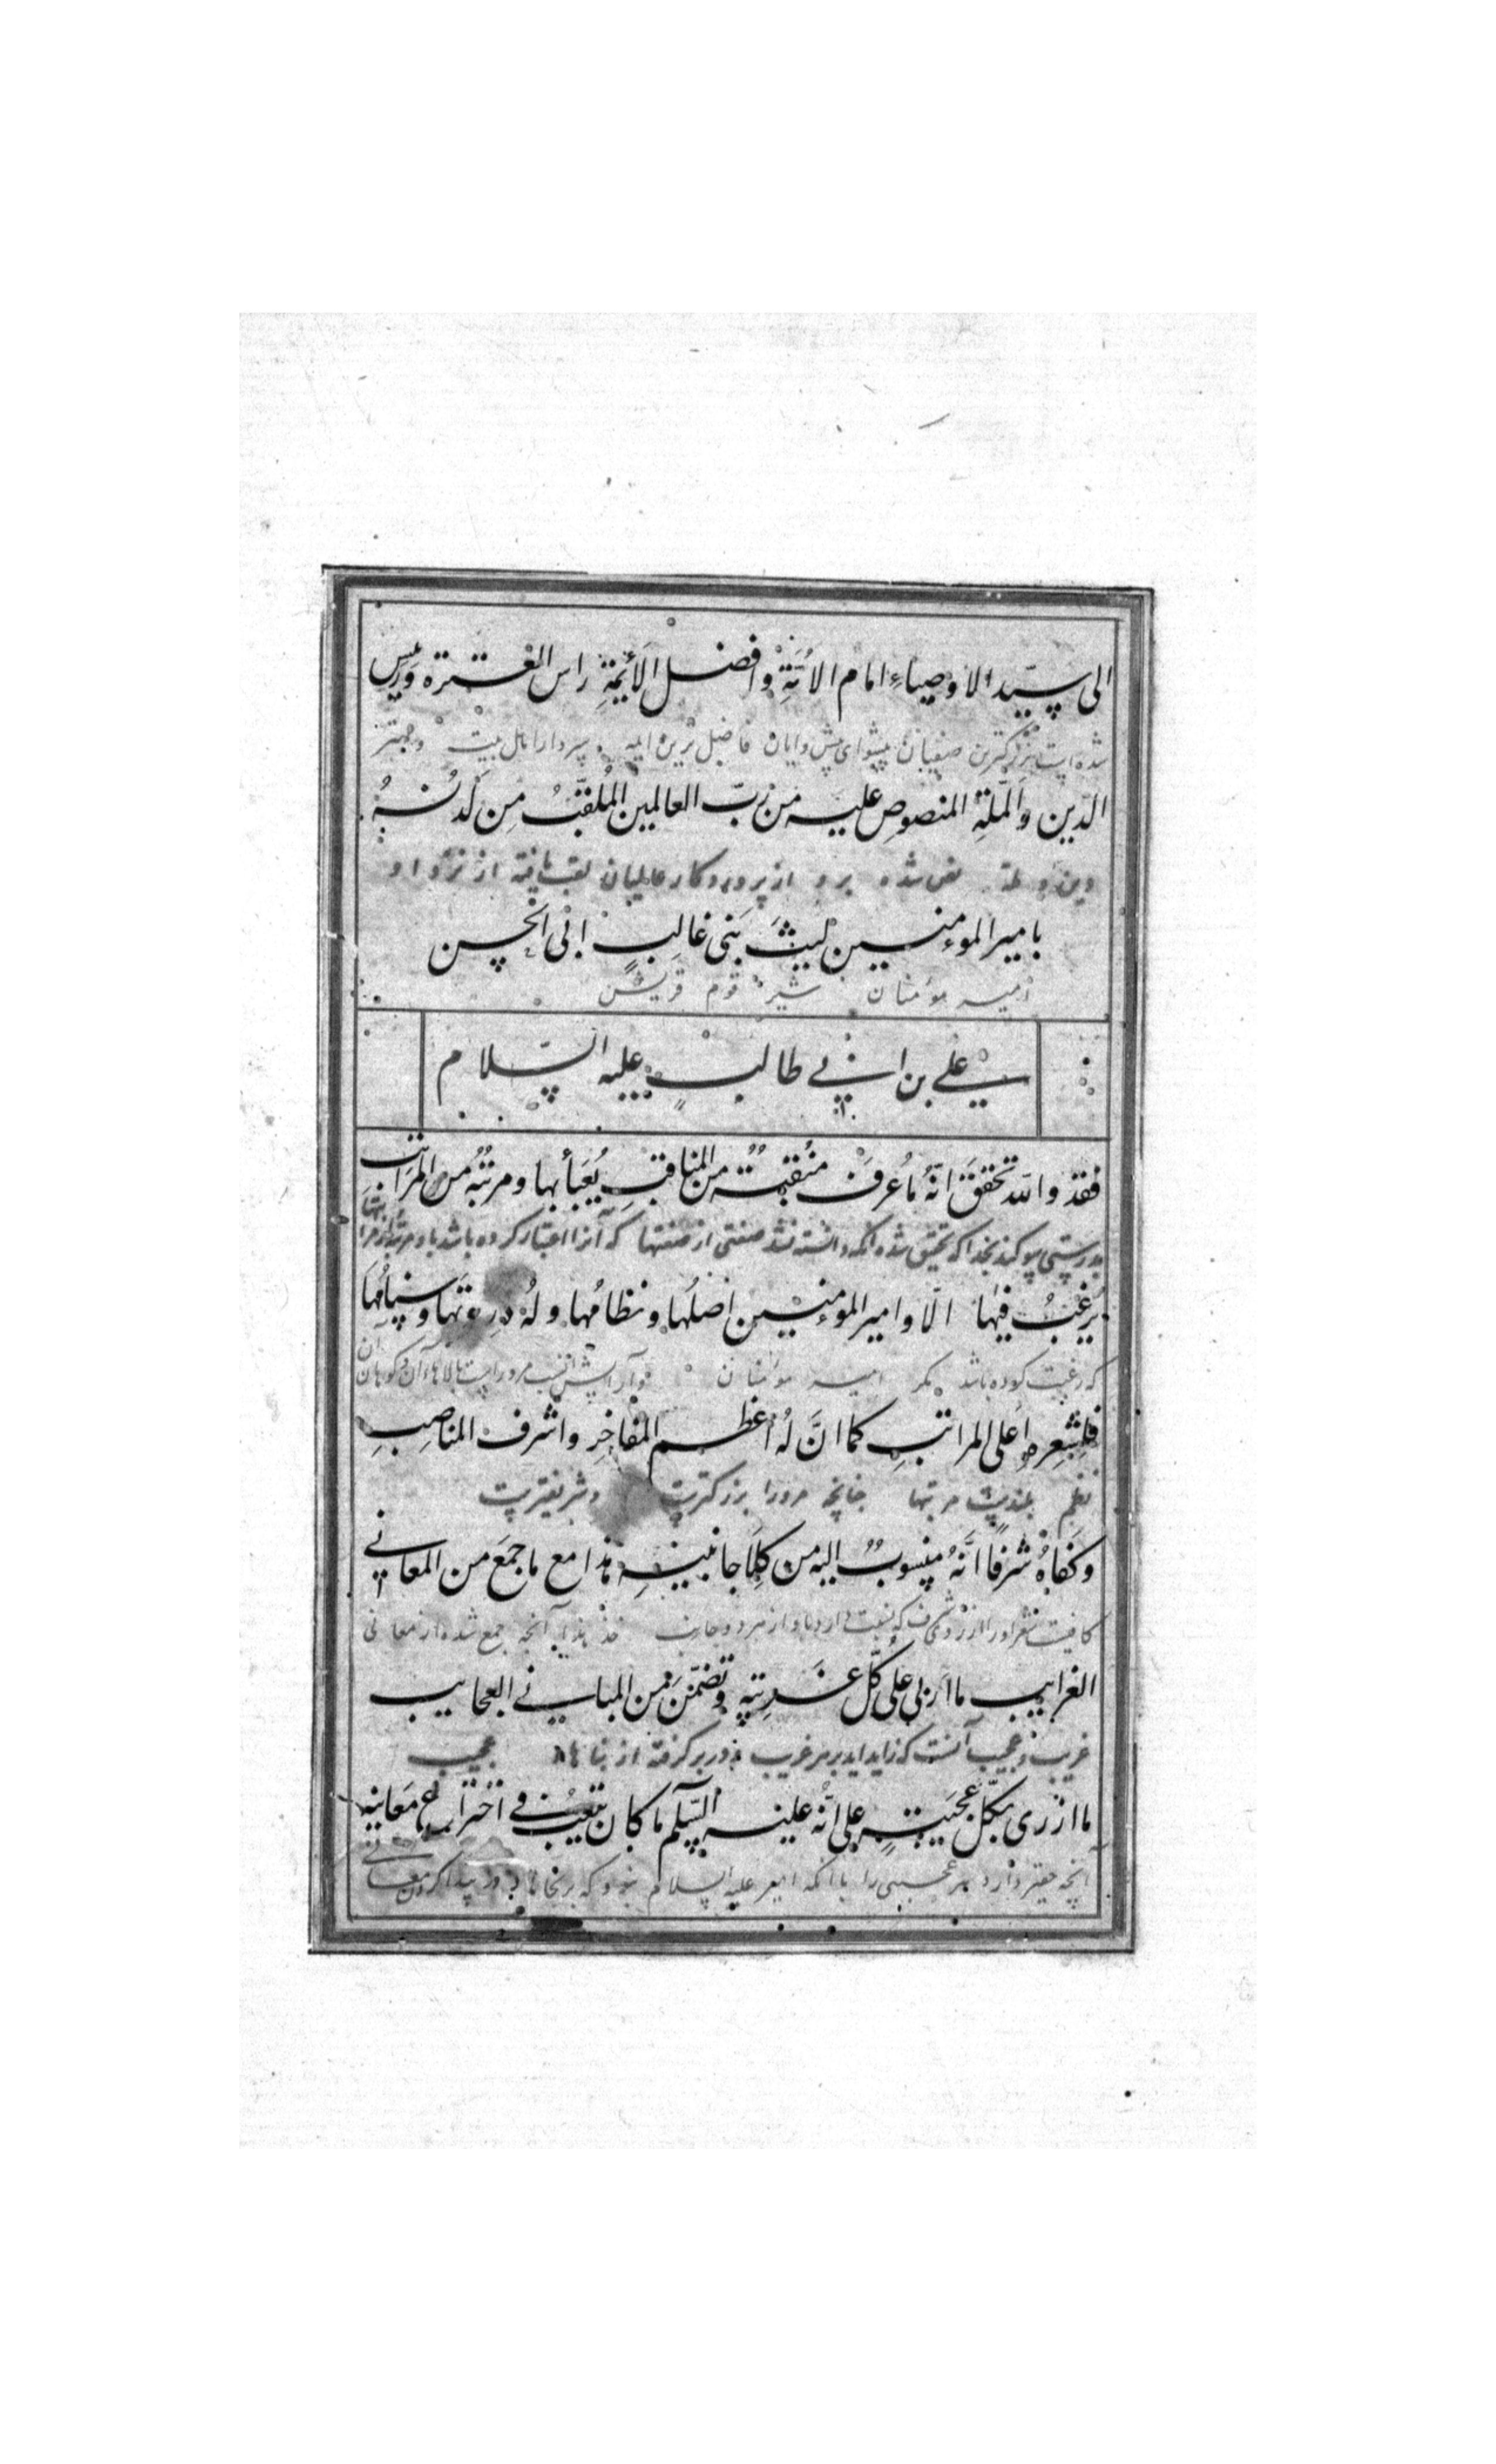 الی سیّد الاوصیاءِ امام الاُمَّةِ وافضل الأئِمَّةِ راس العترة ورییس
شده است بزرگترین صفیان پیشوای پیشوایان فاضل‌ترین ایمه و سردار اهل بیت و مهتر
الدّین والمِلّةِ المنصوص علیه من ربّ العالمین المُلقَّبُ مِن لَدُنهُ
دین و ملة نص شده برو از پروردکار عالمیان لقب یافته از نزد او
بامیر الموءمنین لیثَ بَنی غالِبٍ ابی الحسن
امیر مومنان شیر قوم قریش
علی بن ابی طالب علیه السّلام
فقد والله تحققَ انّهُ ما عُرِفَ منقبةٌ من المناقبِ یُعبَأ بها ومرتبةٌ من المراتبِ
بدرستی سوکند بخدا که تحقیق شده آنکه دانسته نشد صفتی از صفتها که آنرا اعتبار کرده باشد با و مرتبه از مراتبها
یُرغبُ فیها الّا وامیر الموءمنین اصلُها ونظامُها ولهُ ذروتها وسنامُها
که رغبت کرده باشد مکر امیر مومنان و آرایش مرور است بالاهای آن و کوهان آن
فلِشِعرِه اَعلی المراتبِ کما انَّ لهُ اعظم المفاخِرِ واشرف المناصِبِ
نظم بلندیست مرتبها چنانچه مرورا بزرکتریست و شریفتریست
وکفاهُ شرفًا انَّهُ منسوبٌ الیه من کِلا جانبیهِ هذا مع ما جمعَ من المعانی
کافیست شعر اورا از روی شرف که نسبت دارد باو از هر دو جانب آنچه جمع شده از معانی
الغرایب ما اَربی علی کلّ غریبةٍ وتضمّنَ من المبانی العجایب
غریب و عجیب آنست که زاید آید بر هر غریب و در بر کرفته از بناهاء عجیب
ما ازری بکلّ عجیبةٍ علی انّه علیه السّلم ما کان یتعبُ فی اختراع معانیه
آنچه حقیر دارد هر عجیبی را با آنکه امیر علیه السلام نبود که برنجاند در پیدا کردن معانی